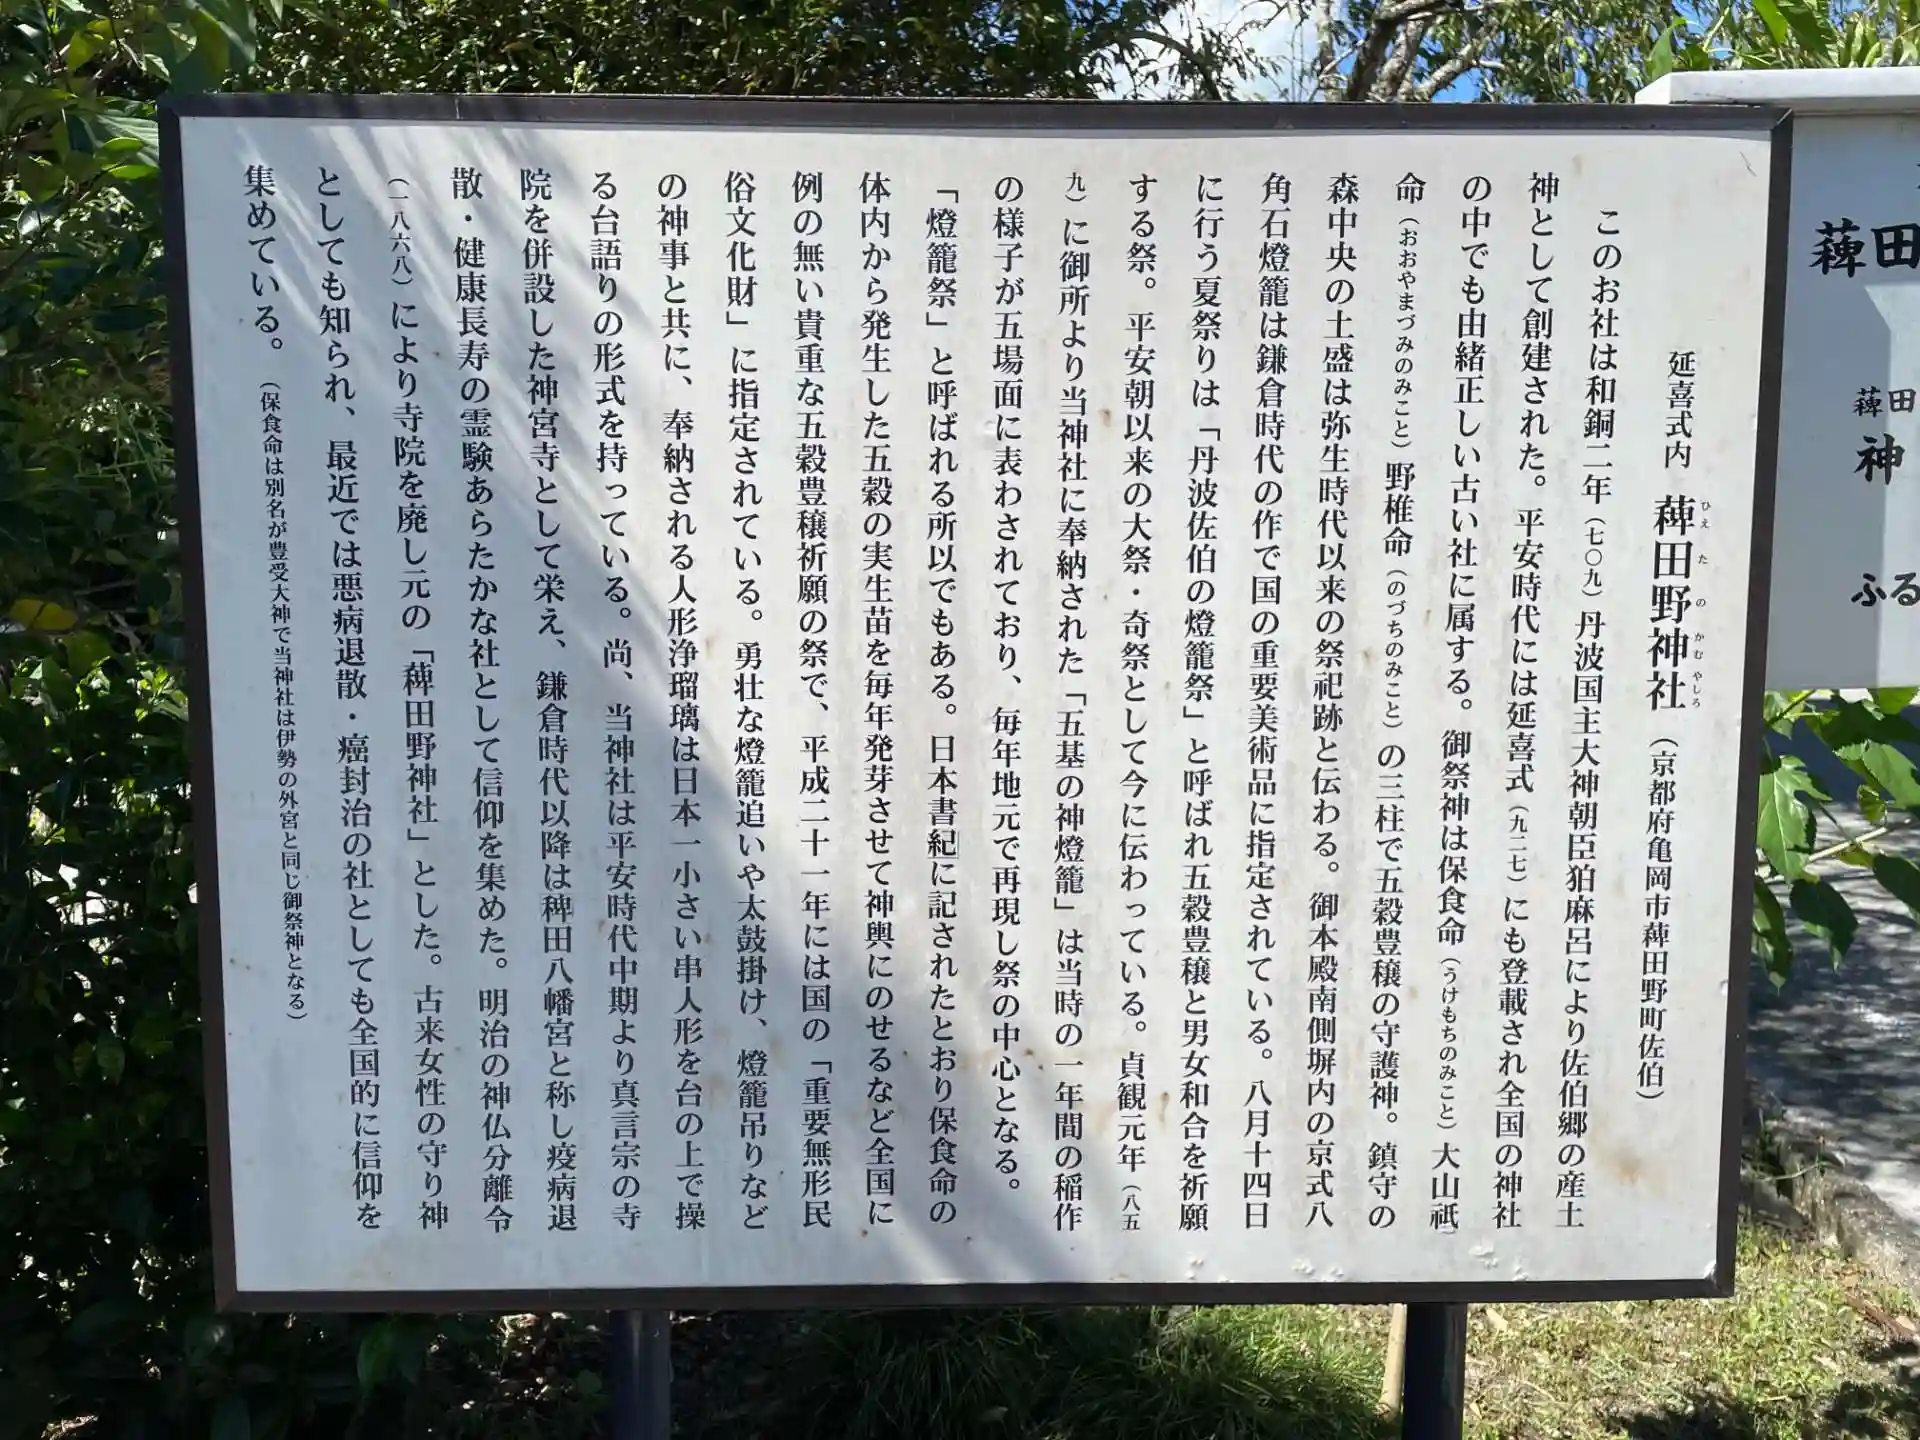 延喜式内 薭田野神社(京都府亀岡市薭田野町佐伯)
ひえ た の かむ やしろ
このお社は和銅二年(七〇九)丹波国主大神朝臣狛麻呂により佐伯郷の産土
神として創建された。平安時代には延喜式(九二七)にも登載され全国の神社
の中でも由緒正しい古い社に属する。御祭神は保食命(うけもちのみこと)大山祇
命(おおやまづみのみこと)野椎命(のづちのみこと)の三柱で五穀豊穣の守護神。鎮守の
森中央の土盛は弥生時代以来の祭祀跡と伝わる。御本殿南側塀内の京式八
角石燈籠は鎌倉時代の作で国の重要美術品に指定されている。八月十四日
に行う夏祭りは「丹波佐伯の燈籠祭」と呼ばれ五穀豊穣と男女和合を祈願
する祭。平安朝以来の大祭・奇祭として今に伝わっている。貞観元年(八五
九)に御所より当神社に奉納された「五基の神燈籠」は当時の一年間の稲作
の様子が五場面に表わされており、毎年地元で再現し祭の中心となる。
「燈籠祭」と呼ばれる所以でもある。日本書紀に記されたとおり保食命の
体内から発生した五穀の実生苗を毎年発芽させて神輿にのせるなど全国に
例の無い貴重な五穀豊穣祈願の祭で、平成二十一年には国の「重要無形民
俗文化財」に指定されている。勇壮な燈籠追いや太鼓掛け、燈籠吊りなど
の神事と共に、奉納される人形浄瑠璃は日本一小さい串人形を台の上で操
る台語りの形式を持っている。尚、当神社は平安時代中期より真言宗の寺
院を併設した神宮寺として栄え、鎌倉時代以降は稗田八幡宮と称し疫病退
散・健康長寿の霊験あらたかな社として信仰を集めた。明治の神仏分離令
(一八六八)により寺院を廃し元の「薭田野神社」とした。古来女性の守り神
としても知られ、最近では悪病退散・癌封治の社としても全国的に信仰を
集めている。(保食命は別名が豊受大神で当神社は伊勢の外宮と同じ御祭神となる)
薭田
薭田
神
ふる